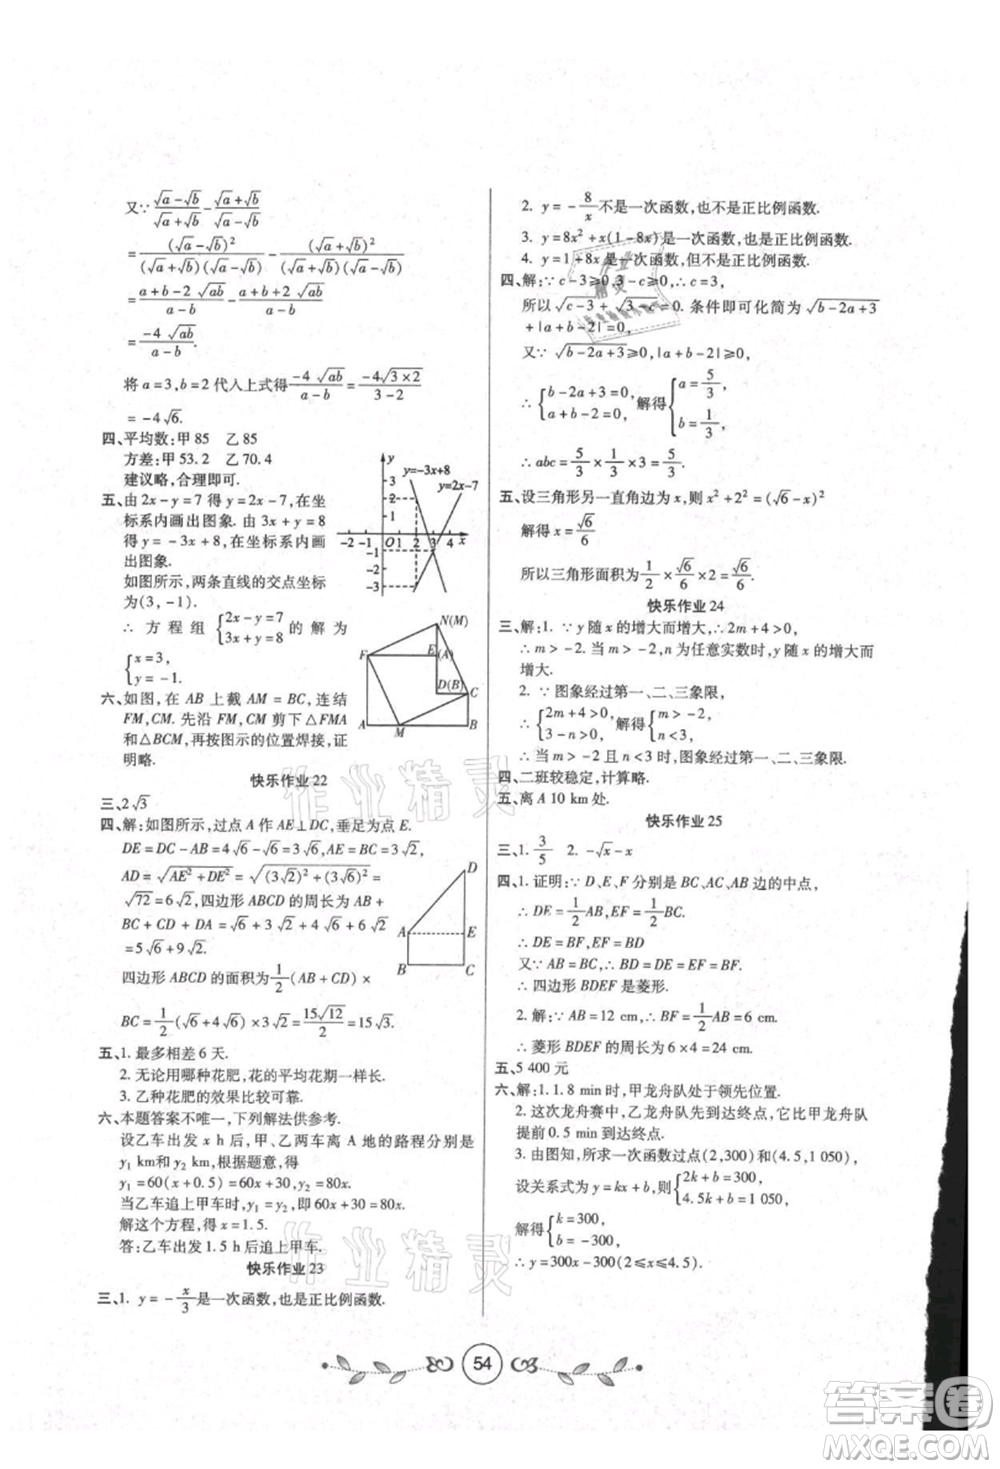 又∵(√a-√b)/(√a+√b)-(√a+√b)/(√a-√b)
=(√a-√b)²/((√a+√b)(√a-√b))-(√a+√b)²/((√a+√b)(√a-√b))
=(a+b-2√ab)/(a-b)-(a+b+2√ab)/(a-b)
=-4√ab/(a-b).
将a=3,b=2代入上式得-4√ab/(a-b)=-4√(3×2)/(3-2)
=-4√6.
四、平均数:甲85 乙85
方差:甲53.2 乙70.4
建议略,合理即可.
五、由2x-y=7得y=2x-7,在坐
标系内画出图象.由3x+y=8
得y=-3x+8,在坐标系内画
出图象.
如图所示,两条直线的交点坐标
为(3,-1).
∴方程组{2x-y=7 3x+y=8的解为
{x=3 y=-1.
y=-3x+8 y=2x-7
y
3
2
1
-2 -1 O 1 2 3 4 x
-1
-2
-3
六、如图,在AB上截AM=BC,连结
FM,CM.先沿FM,CM剪下△FMA
和△BCM,再按图示的位置焊接,证
明略.
N(M)
F E(A)
D(B) C
A M B
快乐作业22
三、2√3
四、解:如图所示,过点A作AE⊥DC,垂足为点E.
DE=DC-AB=4√6-√6=3√6.
AD=√(AE²+DE²)=√((3√2)²+(3√6)²)=
√72=6√2,四边形ABCD的周长为AB+
BC+CD+DA=√6+3√2+4√6+6√2
=5√6+9√2.
四边形ABCD的面积为1/2(AB+CD)×
BC=1/2(√6+4√6)×3√2=15√12/2=15√3.
D
A E
B C
五、1.最多相差6天.
2.无论用哪种花肥,花的平均花期一样长.
3.乙种花肥的效果比较可靠.
六、本题答案不唯一,下列解法供参考.
设乙车出发x h后,甲、乙两车离A地的路程分别是
y₁ km和y₂ km,根据题意,得
y₁=60(x+0.5)=60x+30,y₂=80x.
当乙车追上甲车时,y₁=y₂,即60x+30=80x.
解这个方程,得x=1.5.
答:乙车出发1.5h后追上甲车.
快乐作业23
三、1.y=-x/3是一次函数,也是正比例函数.
2.y=-8/x不是一次函数,也不是正比例函数.
3.y=8x²+x(1-8x)是一次函数,也是正比例函数.
4.y=1+8x是一次函数,但不是正比例函数.
四、解:∵c-3≥0,3-c≥0,∴c=3,
所以√(c-3)+√(3-c)=0.条件即可化简为√(b-2a+3)
+|a+b-2|=0.
又∵√(b-2a+3)≥0,|a+b-2|≥0,
∴{b-2a+3=0, a+b-2=0.解得{a=5/3, b=1/3.
∴abc=5/3×1/3×3=5/3.
五、设三角形另一直角边为x,则x²+2²=(√6-x)²
解得x=√6/6
所以三角形面积为1/2×√6/6×2=√6/6.
快乐作业24
三、解:1.∵y随x的增大而增大,∴2m+4>0,
∴m>-2.因此当m>-2,n为任意实数时,y随x的增大而
增大.
2.∵图象经过第一、二、三象限,
∴{2m+4>0, 3-n>0.解得{m>-2, n<3.
∴当m>-2且n<3时,图象经过第一、二、三象限.
四、二班较稳定,计算略.
五、离A 10 km处.
快乐作业25
三、1.3/5 2.-√x-x
四、1.证明:∵D、E、F分别是BC、AC、AB边的中点,
∴DE=1/2AB,EF=1/2BC.
∴DE=BF,EF=BD
又∵AB=BC,∴BD=DE=EF=BF
∴四边形BDEF是菱形.
2.解:∵AB=12 cm,F为AB中点,∴BF=1/2AB=6 cm,
∴菱形BDEF的周长为6×4=24 cm.
五、5 400元
六、解:1.1.8 min时,甲龙舟队处于领先位置.
2.这次龙舟赛中,乙龙舟队先到达终点,它比甲龙舟队
提前0.5 min到达终点.
3.由图知,所求一次函数过点(2,300)和(4.5,1 050),
设关系式为y=kx+b,则{2k+b=300, 4.5k+b=1 050,
解得{k=300, b=-300.
∴y=300x-300(2≤x≤4.5).
54
作业精灵
作业精灵
答案卷
MXQE.COM